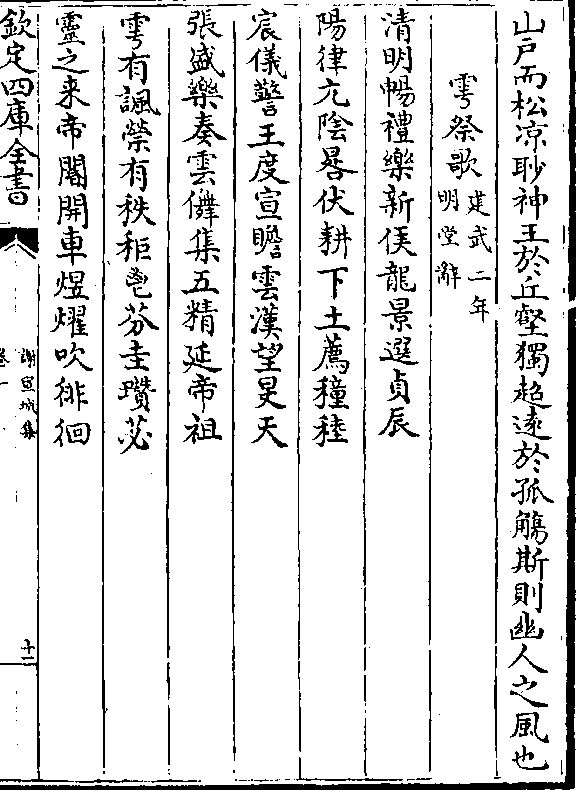 山戸而松凉眇神王於丘壑獨超遠於孤觴斯則幽人之風也
雩祭歌建武二年
明堂辭
清明暢禮樂新侯龍景選貞辰
陽律亢陰晷伏耕下土薦穜稑
宸儀警王度宣瞻雲漢望旻天
張盛樂奏雲儛集五精延帝祖
雩有諷禜有秩秬鬯芬圭瓚苾
靈之来帝閽開車煜燿吹徘徊
欽定四庫全書
謝宣城集
卷一
十二